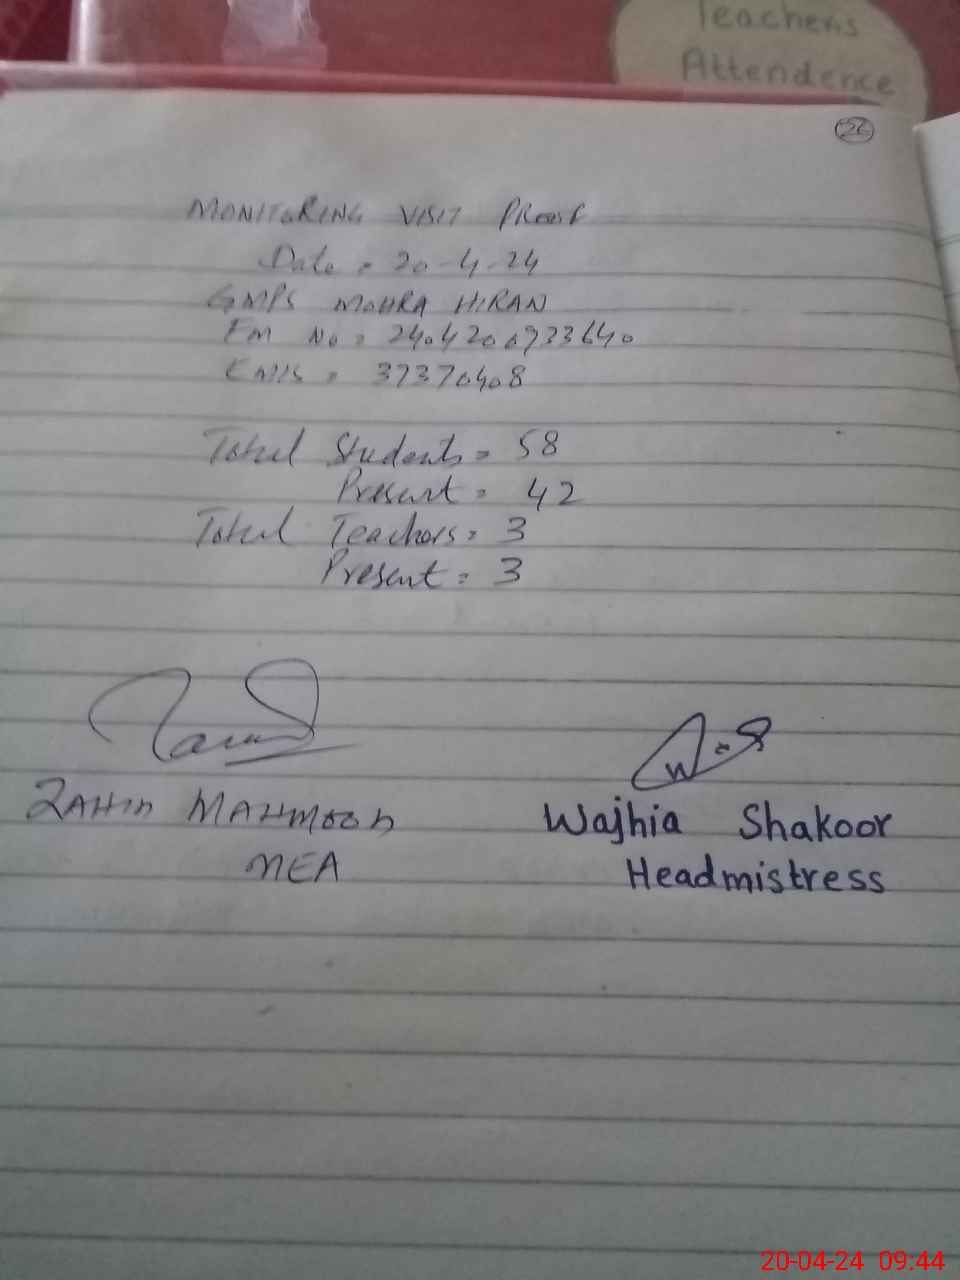 Teachers
Attendence
26
MONITORING VISIT PROOF
Date = 20-4-24
GMPS MOHRA HIRAN
EM No = 2404200933640
EMIS = 37370408
Total Students = 58
Present = 42
Total Teachers = 3
Present = 3
ZAHID MAHMOOD
MEA
Wajhia Shakoor
Headmistress
20-04-24 09:44